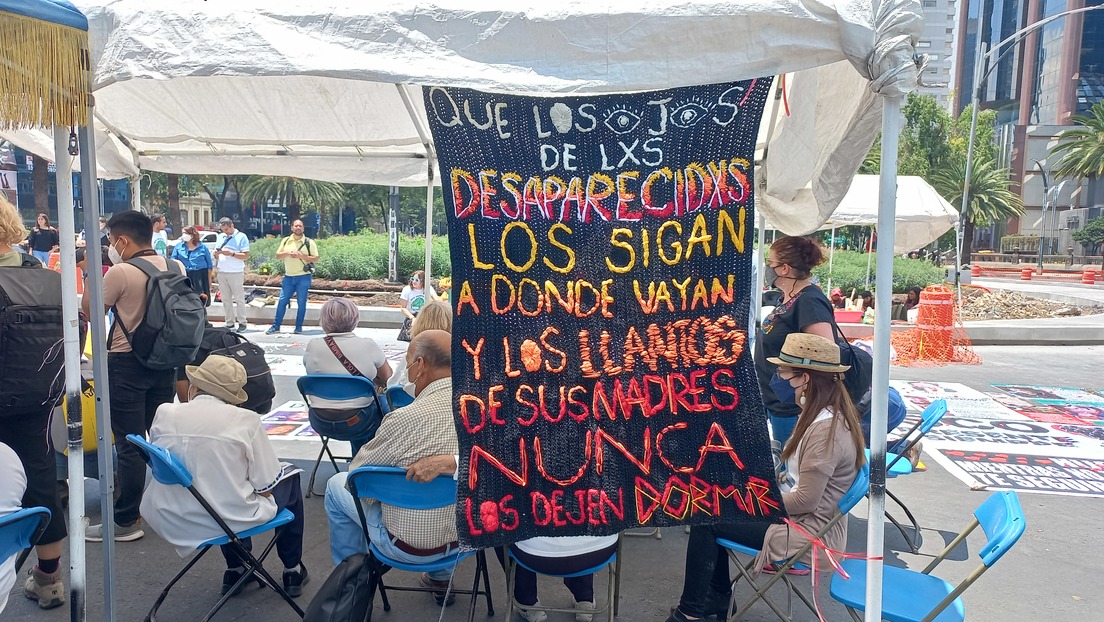 QUE LOS OJOS
DE LXS
DESAPARECIDXS
LOS SIGAN
A DONDE VAYAN
Y LOS LLANTOS
DE SUS MADRES
NUNCA
LOS DEJEN DORMIR